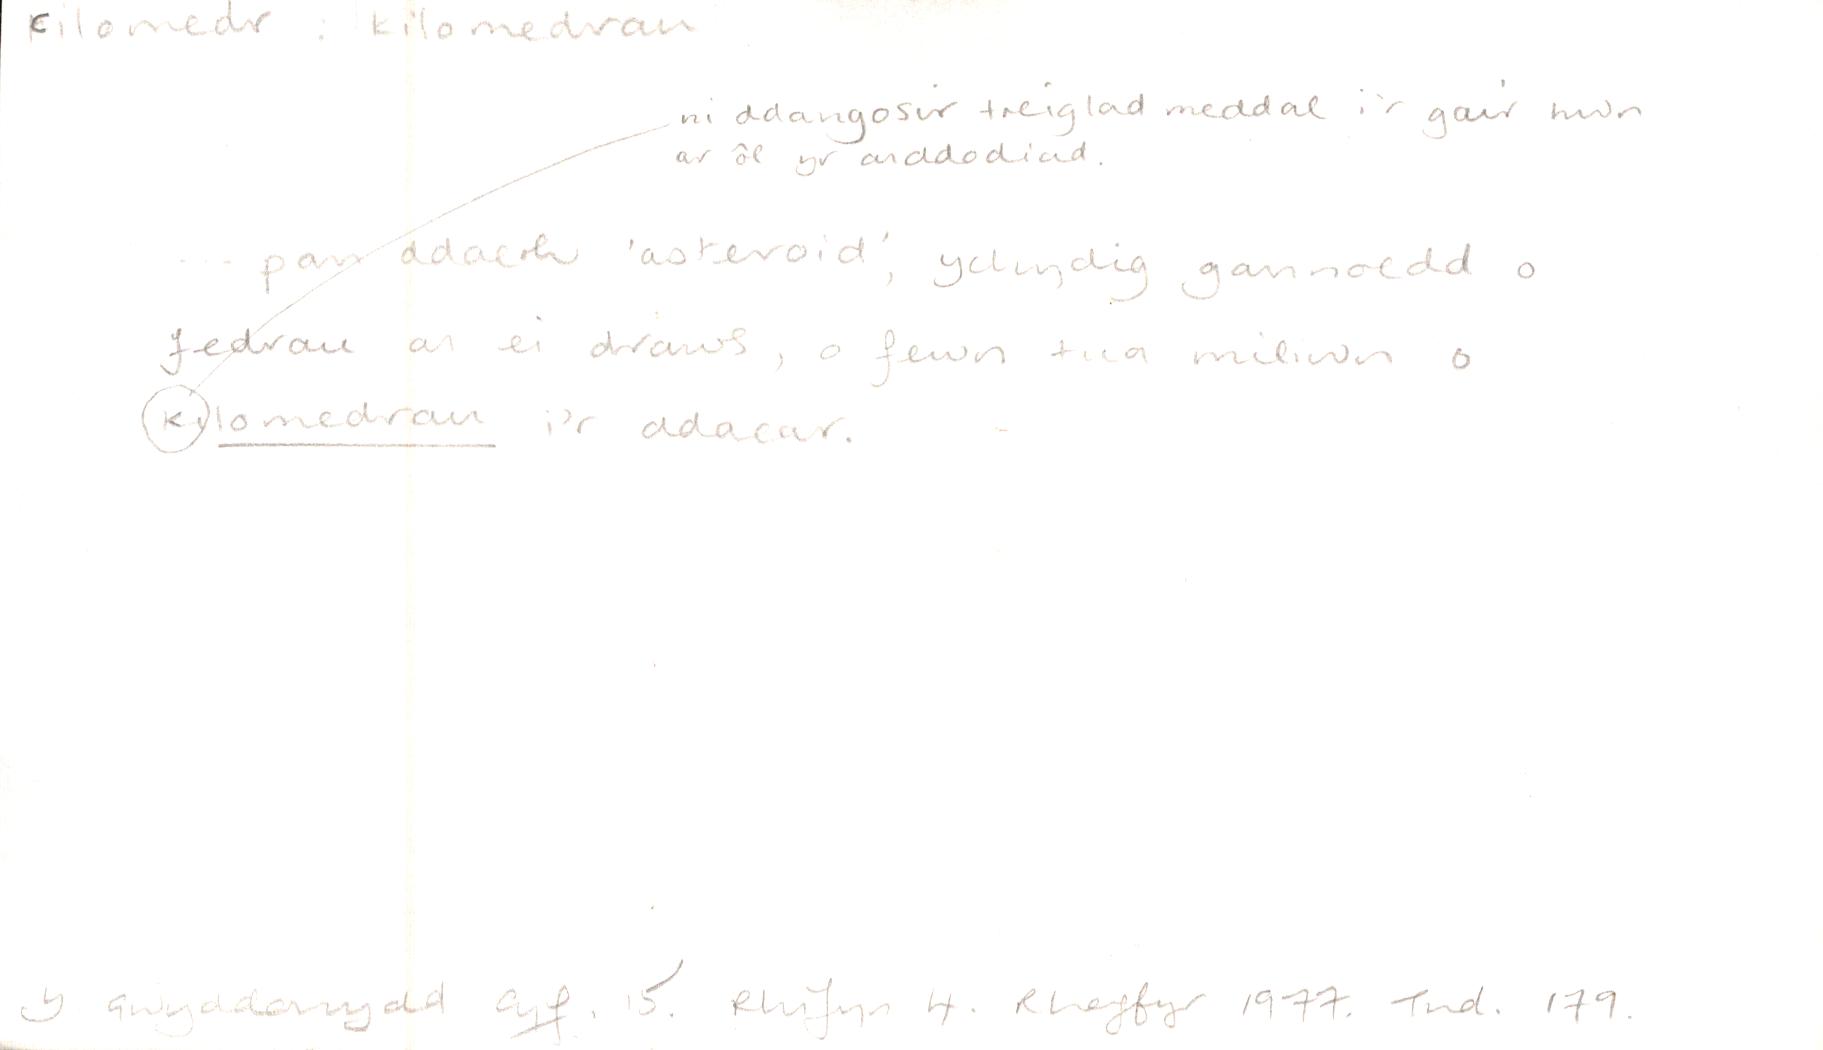 cilomedr : kilomedrau
ni ddangosir treiglad meddal i'r gair hwn
ar ôl yr arddodiad.
... pan ddaeth 'asteroid', ychydig gannoedd o
fedrau ar ei draws, o fewn tua miliwn o
kilomedrau i'r ddaear.
Y Gwyddonydd Cyf. 15. Rhifyn 4. Rhagfyr 1977. Tud. 179.